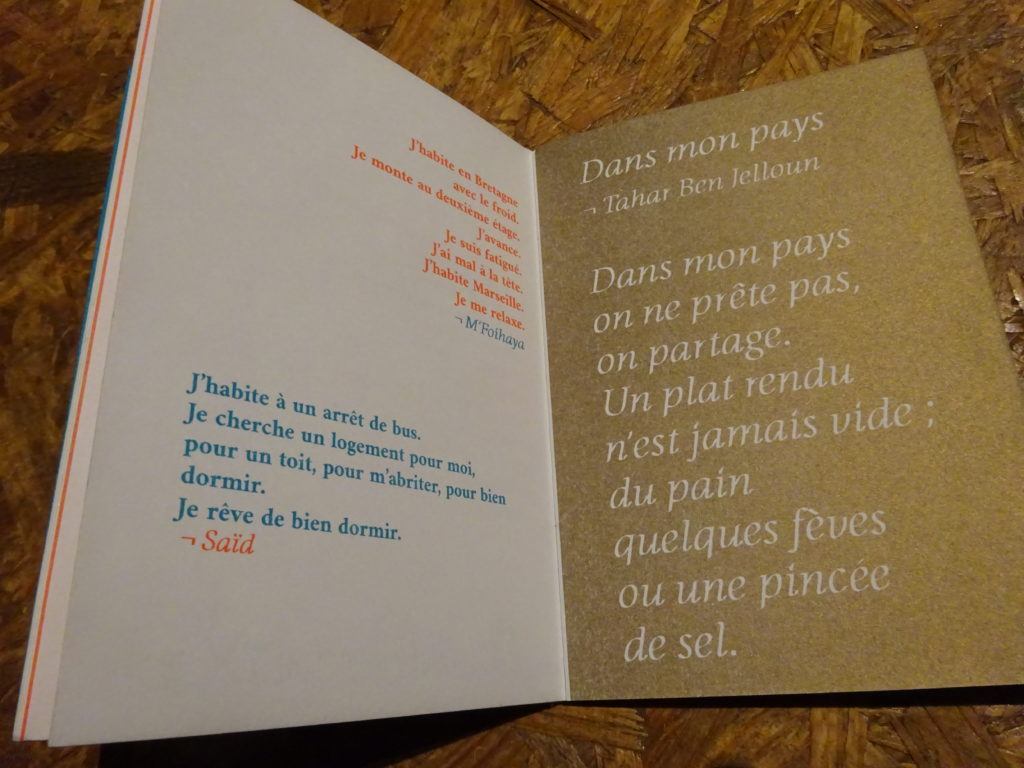 J'habite en Bretagne
avec le froid.
Je monte au deuxième étage.
J'avance.
Je suis fatigué.
J'ai mal à la tête.
J'habite Marseille.
Je me relaxe.
¬ M'Foihaya
J'habite à un arrêt de bus.
Je cherche un logement pour moi,
pour un toit, pour m'abriter, pour bien
dormir.
Je rêve de bien dormir.
¬ Saïd
Dans mon pays
¬ Tahar Ben Jelloun
Dans mon pays
on ne prête pas,
on partage.
Un plat rendu
n'est jamais vide ;
du pain
quelques fèves
ou une pincée
de sel.